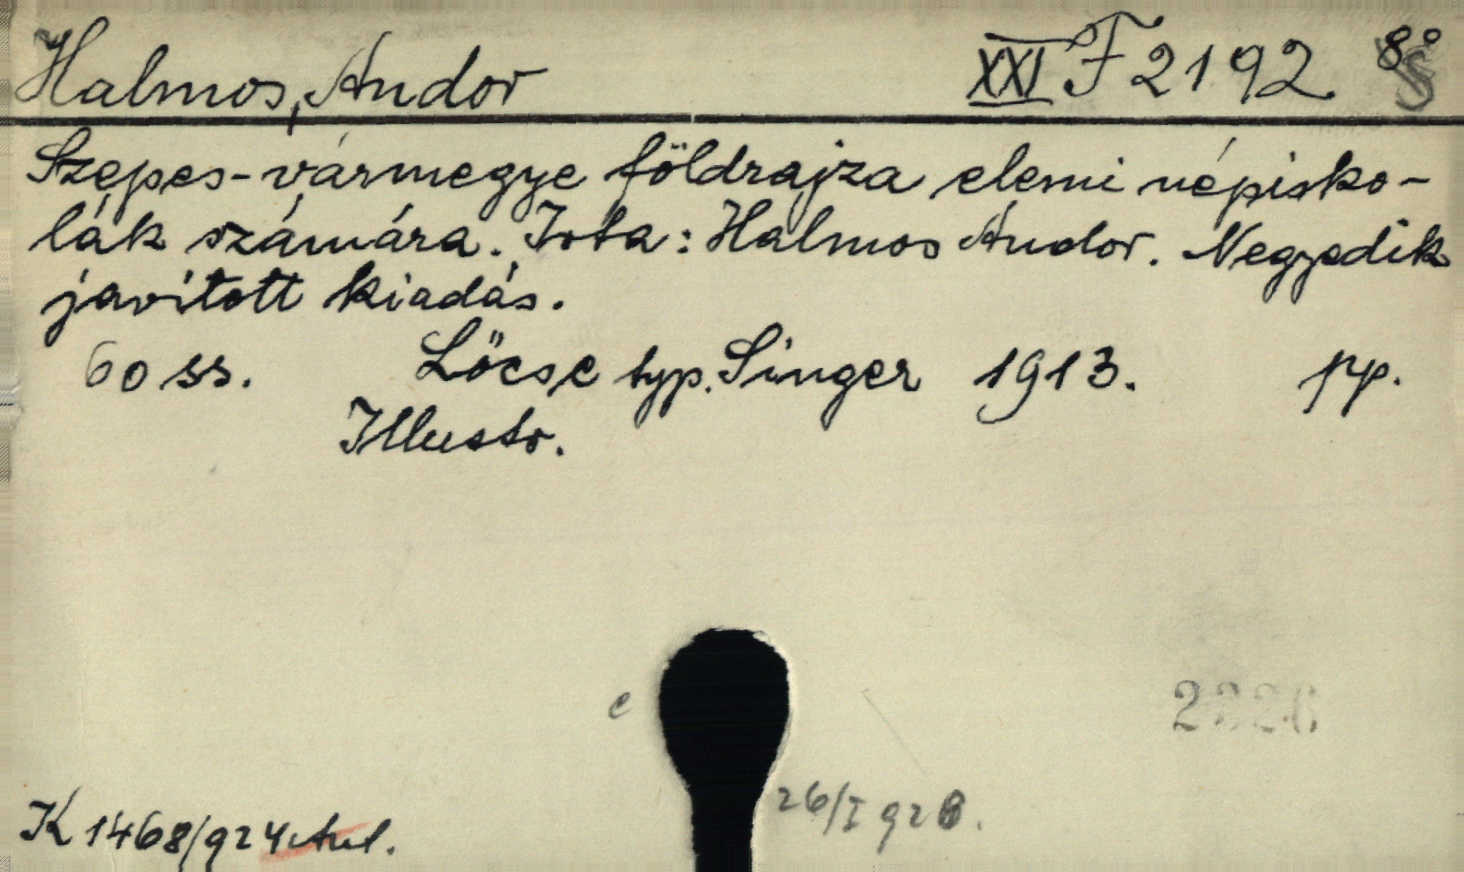 Halmos, Andor XXI F 2192 8°
Szepes-vármegye földrajza elemi népisko-
lák számára. Irta: Halmos Andor. Negyedik
javított kiadás.
60 ss. Lőcse typ. Singer 1913. pp.
Illustr.
c
K 1468/924 Aut.
26/I 928.